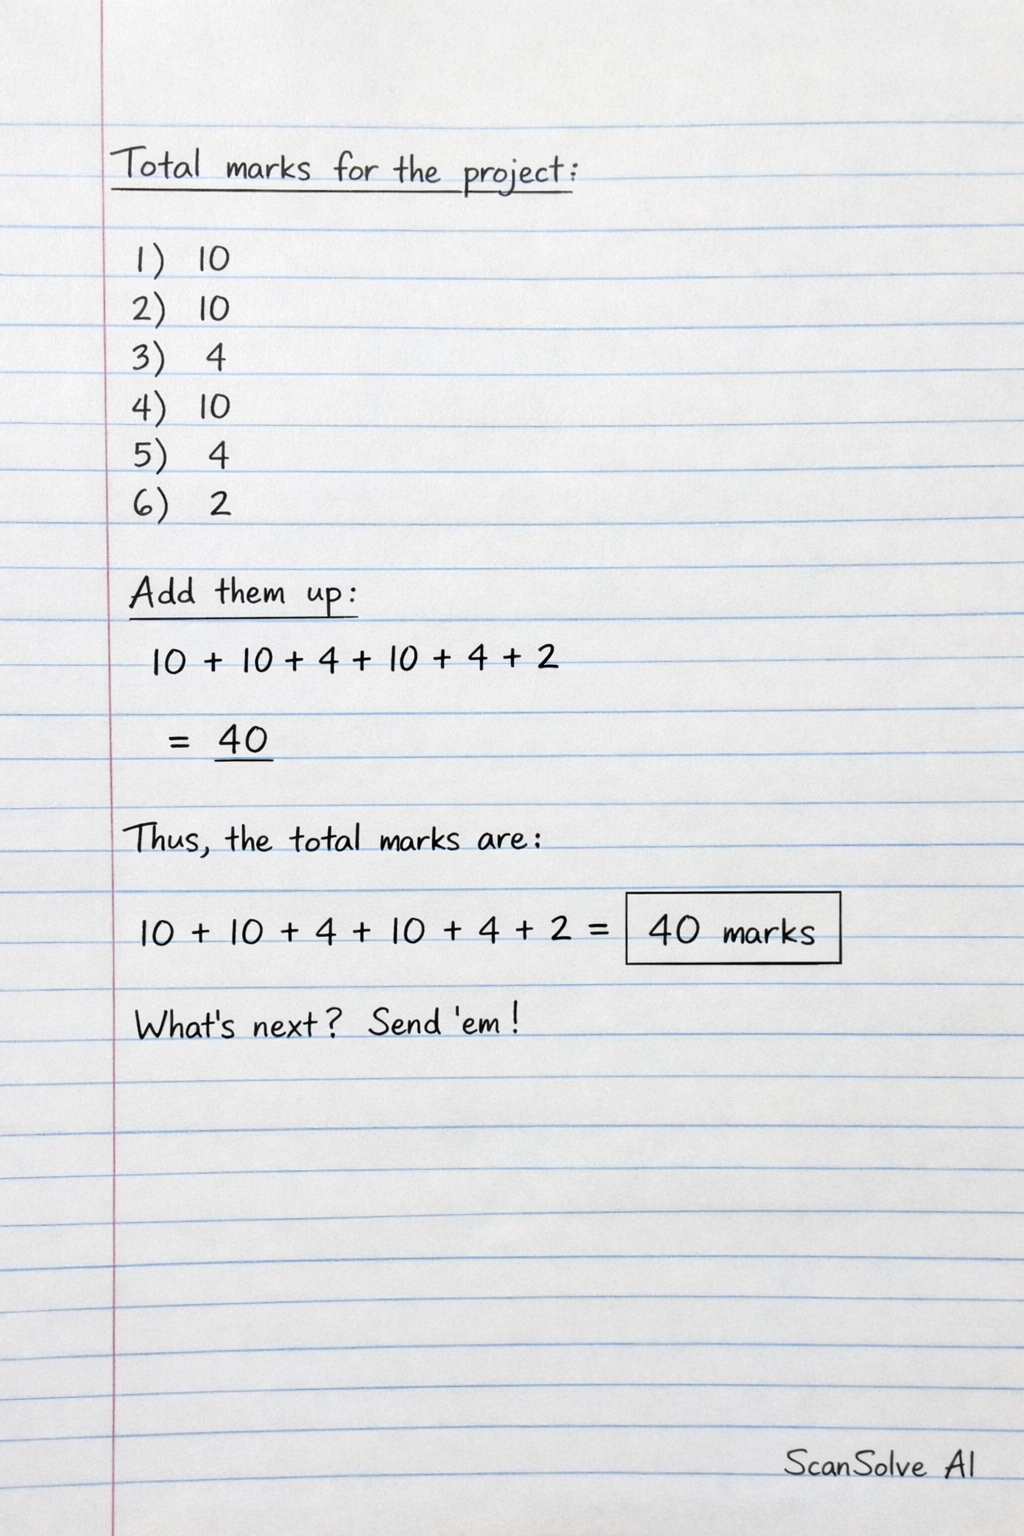 Total marks for the project:
1) 10
2) 10
3) 4
4) 10
5) 4
6) 2
Add them up:
10 + 10 + 4 + 10 + 4 + 2
= 40
Thus, the total marks are:
10 + 10 + 4 + 10 + 4 + 2 = 40 marks
What's next? Send 'em!
ScanSolve AI